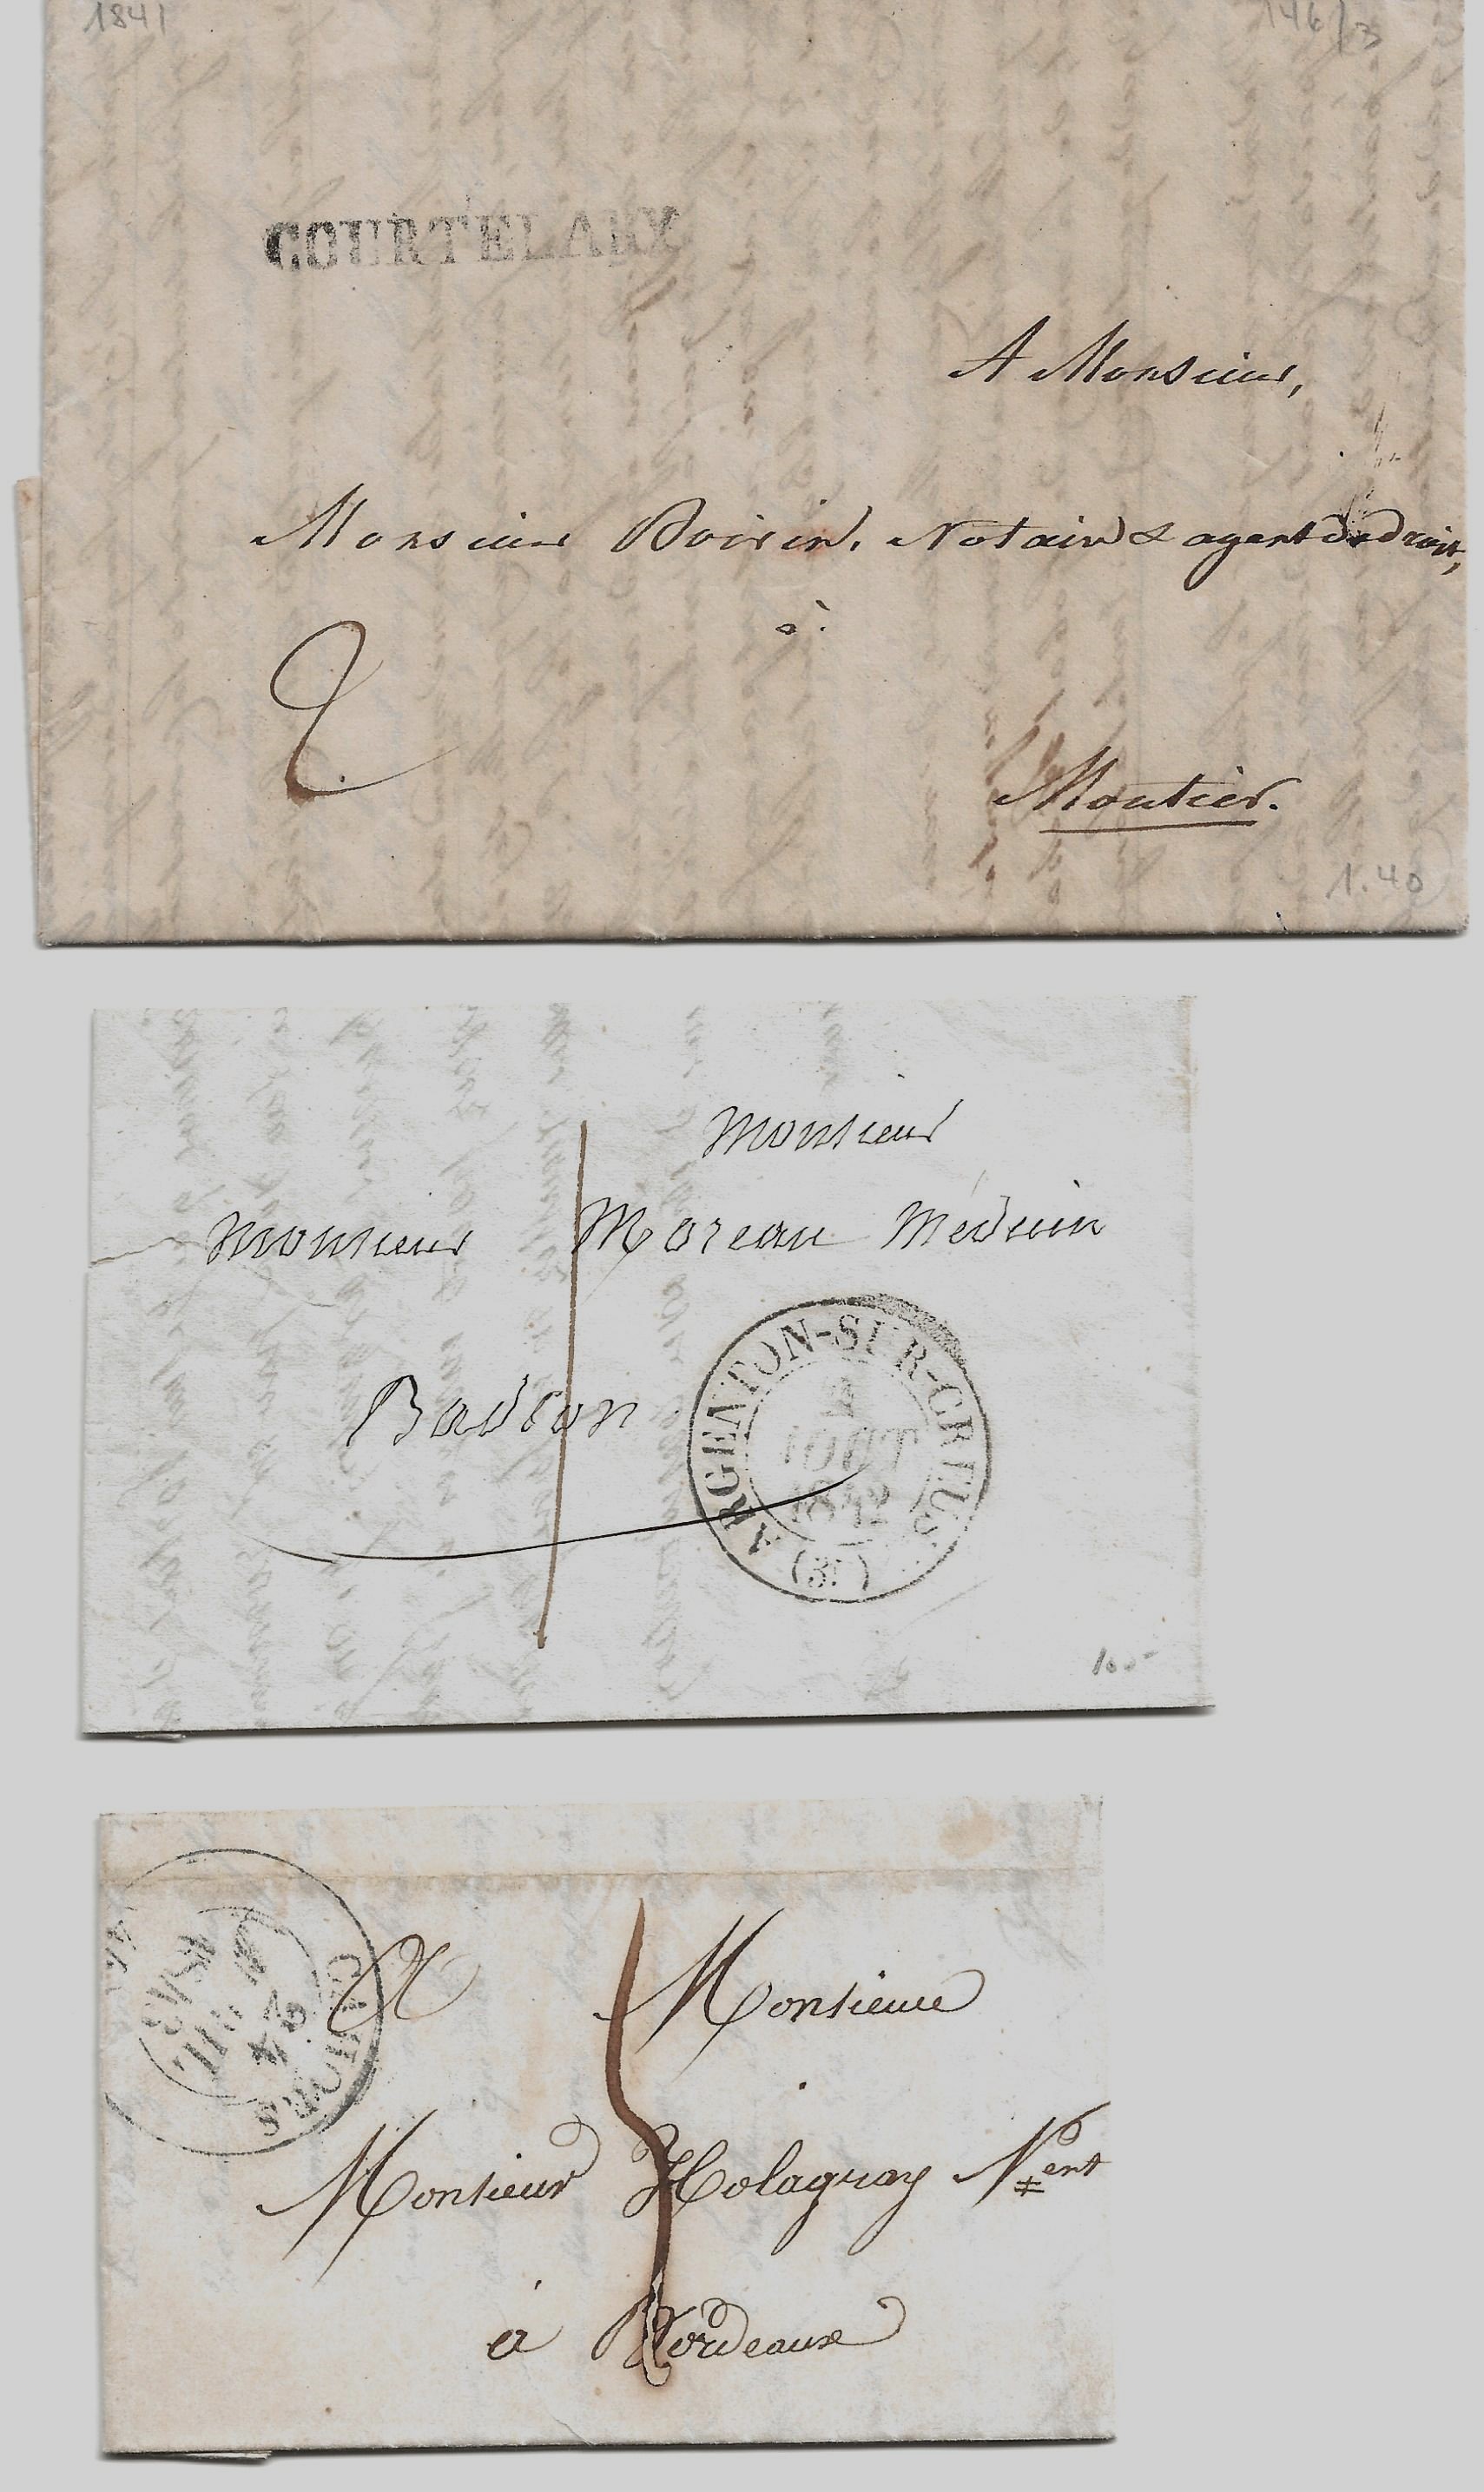 1841
146/3
COURTELARY
A Monsieur,
Monsieur Boivin, Notaire & agent de droit,
à
2
Moutier.
1.40
Monsieur
Monsieur Moreau Médecin
Badecon
1
ARGENTON-SUR-CREUSE
2
AOUT
1842
(35)
100-
CAHORS
A Monsieur
5
Monsieur Holagray Nent
à Bordeaux